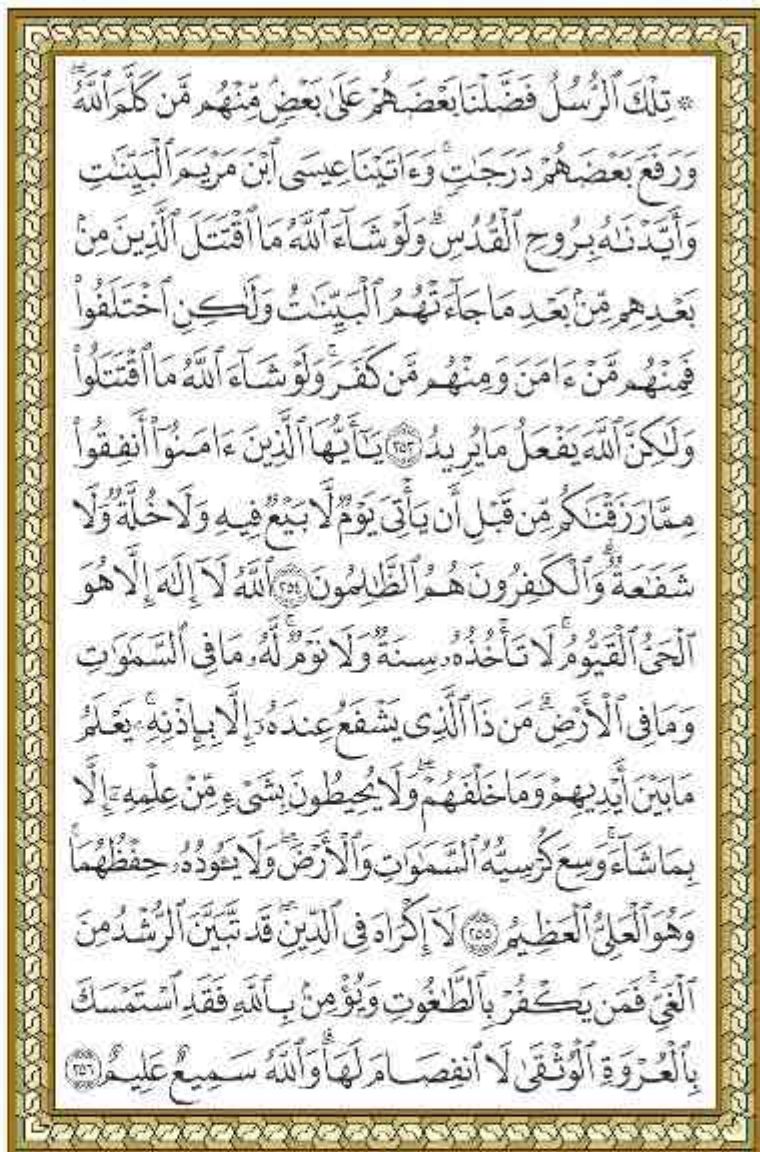 ۞ تِلْكَ ٱلرُّسُلُ فَضَّلْنَا بَعْضَهُمْ عَلَىٰ بَعْضٍۘ مِّنْهُم مَّن كَلَّمَ ٱللَّهُۖ
وَرَفَعَ بَعْضَهُمْ دَرَجَـٰتٍۚ وَءَاتَيْنَا عِيسَى ٱبْنَ مَرْيَمَ ٱلْبَيِّنَـٰتِ
وَأَيَّدْنَـٰهُ بِرُوحِ ٱلْقُدُسِۗ وَلَوْ شَآءَ ٱللَّهُ مَا ٱقْتَتَلَ ٱلَّذِينَ مِنۢ
بَعْدِهِم مِّنۢ بَعْدِ مَا جَآءَتْهُمُ ٱلْبَيِّنَـٰتُ وَلَـٰكِنِ ٱخْتَلَفُوا۟
فَمِنْهُم مَّنْ ءَامَنَ وَمِنْهُم مَّن كَفَرَۚ وَلَوْ شَآءَ ٱللَّهُ مَا ٱقْتَتَلُوا۟
وَلَـٰكِنَّ ٱللَّهَ يَفْعَلُ مَا يُرِيدُ ٢٥٣ يَـٰٓأَيُّهَا ٱلَّذِينَ ءَامَنُوٓا۟ أَنفِقُوا۟
مِمَّا رَزَقْنَـٰكُم مِّن قَبْلِ أَن يَأْتِىَ يَوْمٌ لَّا بَيْعٌ فِيهِ وَلَا خُلَّةٌ وَلَا
شَفَـٰعَةٌۗ وَٱلْكَـٰفِرُونَ هُمُ ٱلظَّـٰلِمُونَ ٢٥٤ ٱللَّهُ لَآ إِلَـٰهَ إِلَّا هُوَ
ٱلْحَىُّ ٱلْقَيُّومُۚ لَا تَأْخُذُهُۥ سِنَةٌ وَلَا نَوْمٌۚ لَّهُۥ مَا فِى ٱلسَّمَـٰوَٰتِ
وَمَا فِى ٱلْأَرْضِۗ مَن ذَا ٱلَّذِى يَشْفَعُ عِندَهُۥٓ إِلَّا بِإِذْنِهِۦۚ يَعْلَمُ
مَا بَيْنَ أَيْدِيهِمْ وَمَا خَلْفَهُمْۖ وَلَا يُحِيطُونَ بِشَىْءٍ مِّنْ عِلْمِهِۦٓ إِلَّا
بِمَا شَآءَۚ وَسِعَ كُرْسِيُّهُ ٱلسَّمَـٰوَٰتِ وَٱلْأَرْضَۖ وَلَا يَـُٔودُهُۥ حِفْظُهُمَاۚ
وَهُوَ ٱلْعَلِىُّ ٱلْعَظِيمُ ٢٥٥ لَآ إِكْرَاهَ فِى ٱلدِّينِۖ قَد تَّبَيَّنَ ٱلرُّشْدُ مِنَ
ٱلْغَىِّۚ فَمَن يَكْفُرْ بِٱلطَّـٰغُوتِ وَيُؤْمِنۢ بِٱللَّهِ فَقَدِ ٱسْتَمْسَكَ
بِٱلْعُرْوَةِ ٱلْوُثْقَىٰ لَا ٱنفِصَامَ لَهَاۗ وَٱللَّهُ سَمِيعٌ عَلِيمٌ ٢٥٦